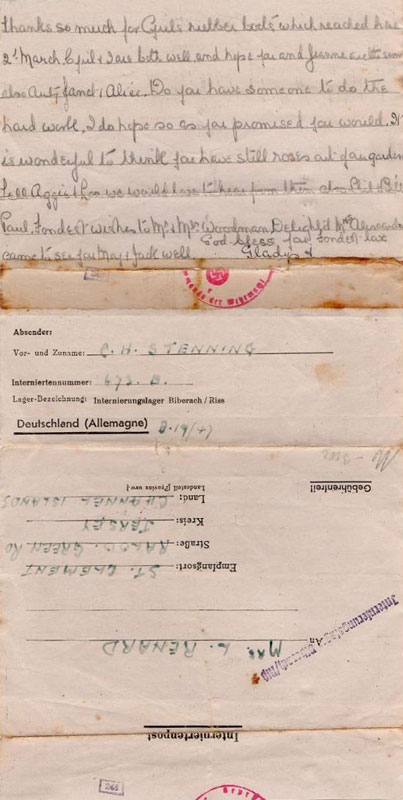 thanks so much for Cyril's rubber boots which reached here
2ⁿᵈ March. Cyril & I are both well and hope you and Jeanne are the same
also Aunt Jane & Alice. Do you have someone to do the
hard work, I do hope so as you promised you would. It
is wonderful to think you have still roses out of your garden
Tell Aggie & Leo we would love to hear from them also Phil & Bill
Paul. Fondest wishes to Mr & Mrs Woodman Delighted Mrs
came to see you May & Jack well. God bless you fondest love
Gladys x
der Wehrmacht
Absender:
Vor- und Zuname: C. H. STENNING
Interniertennummer: 673. B.
Lager-Bezeichnung: Internierungslager Biberach / Riss
Deutschland (Allemagne)
Gebührenfrei!
Landesteil (Provinz usw.)
Land: CHANNEL ISLANDS
Kreis: JERSEY
Straße: GREEN RD
Empfangsort: ST. CLEMENT
Internierungslager Biberach/Riß
An MRS L. RENARD
Interniertenpost